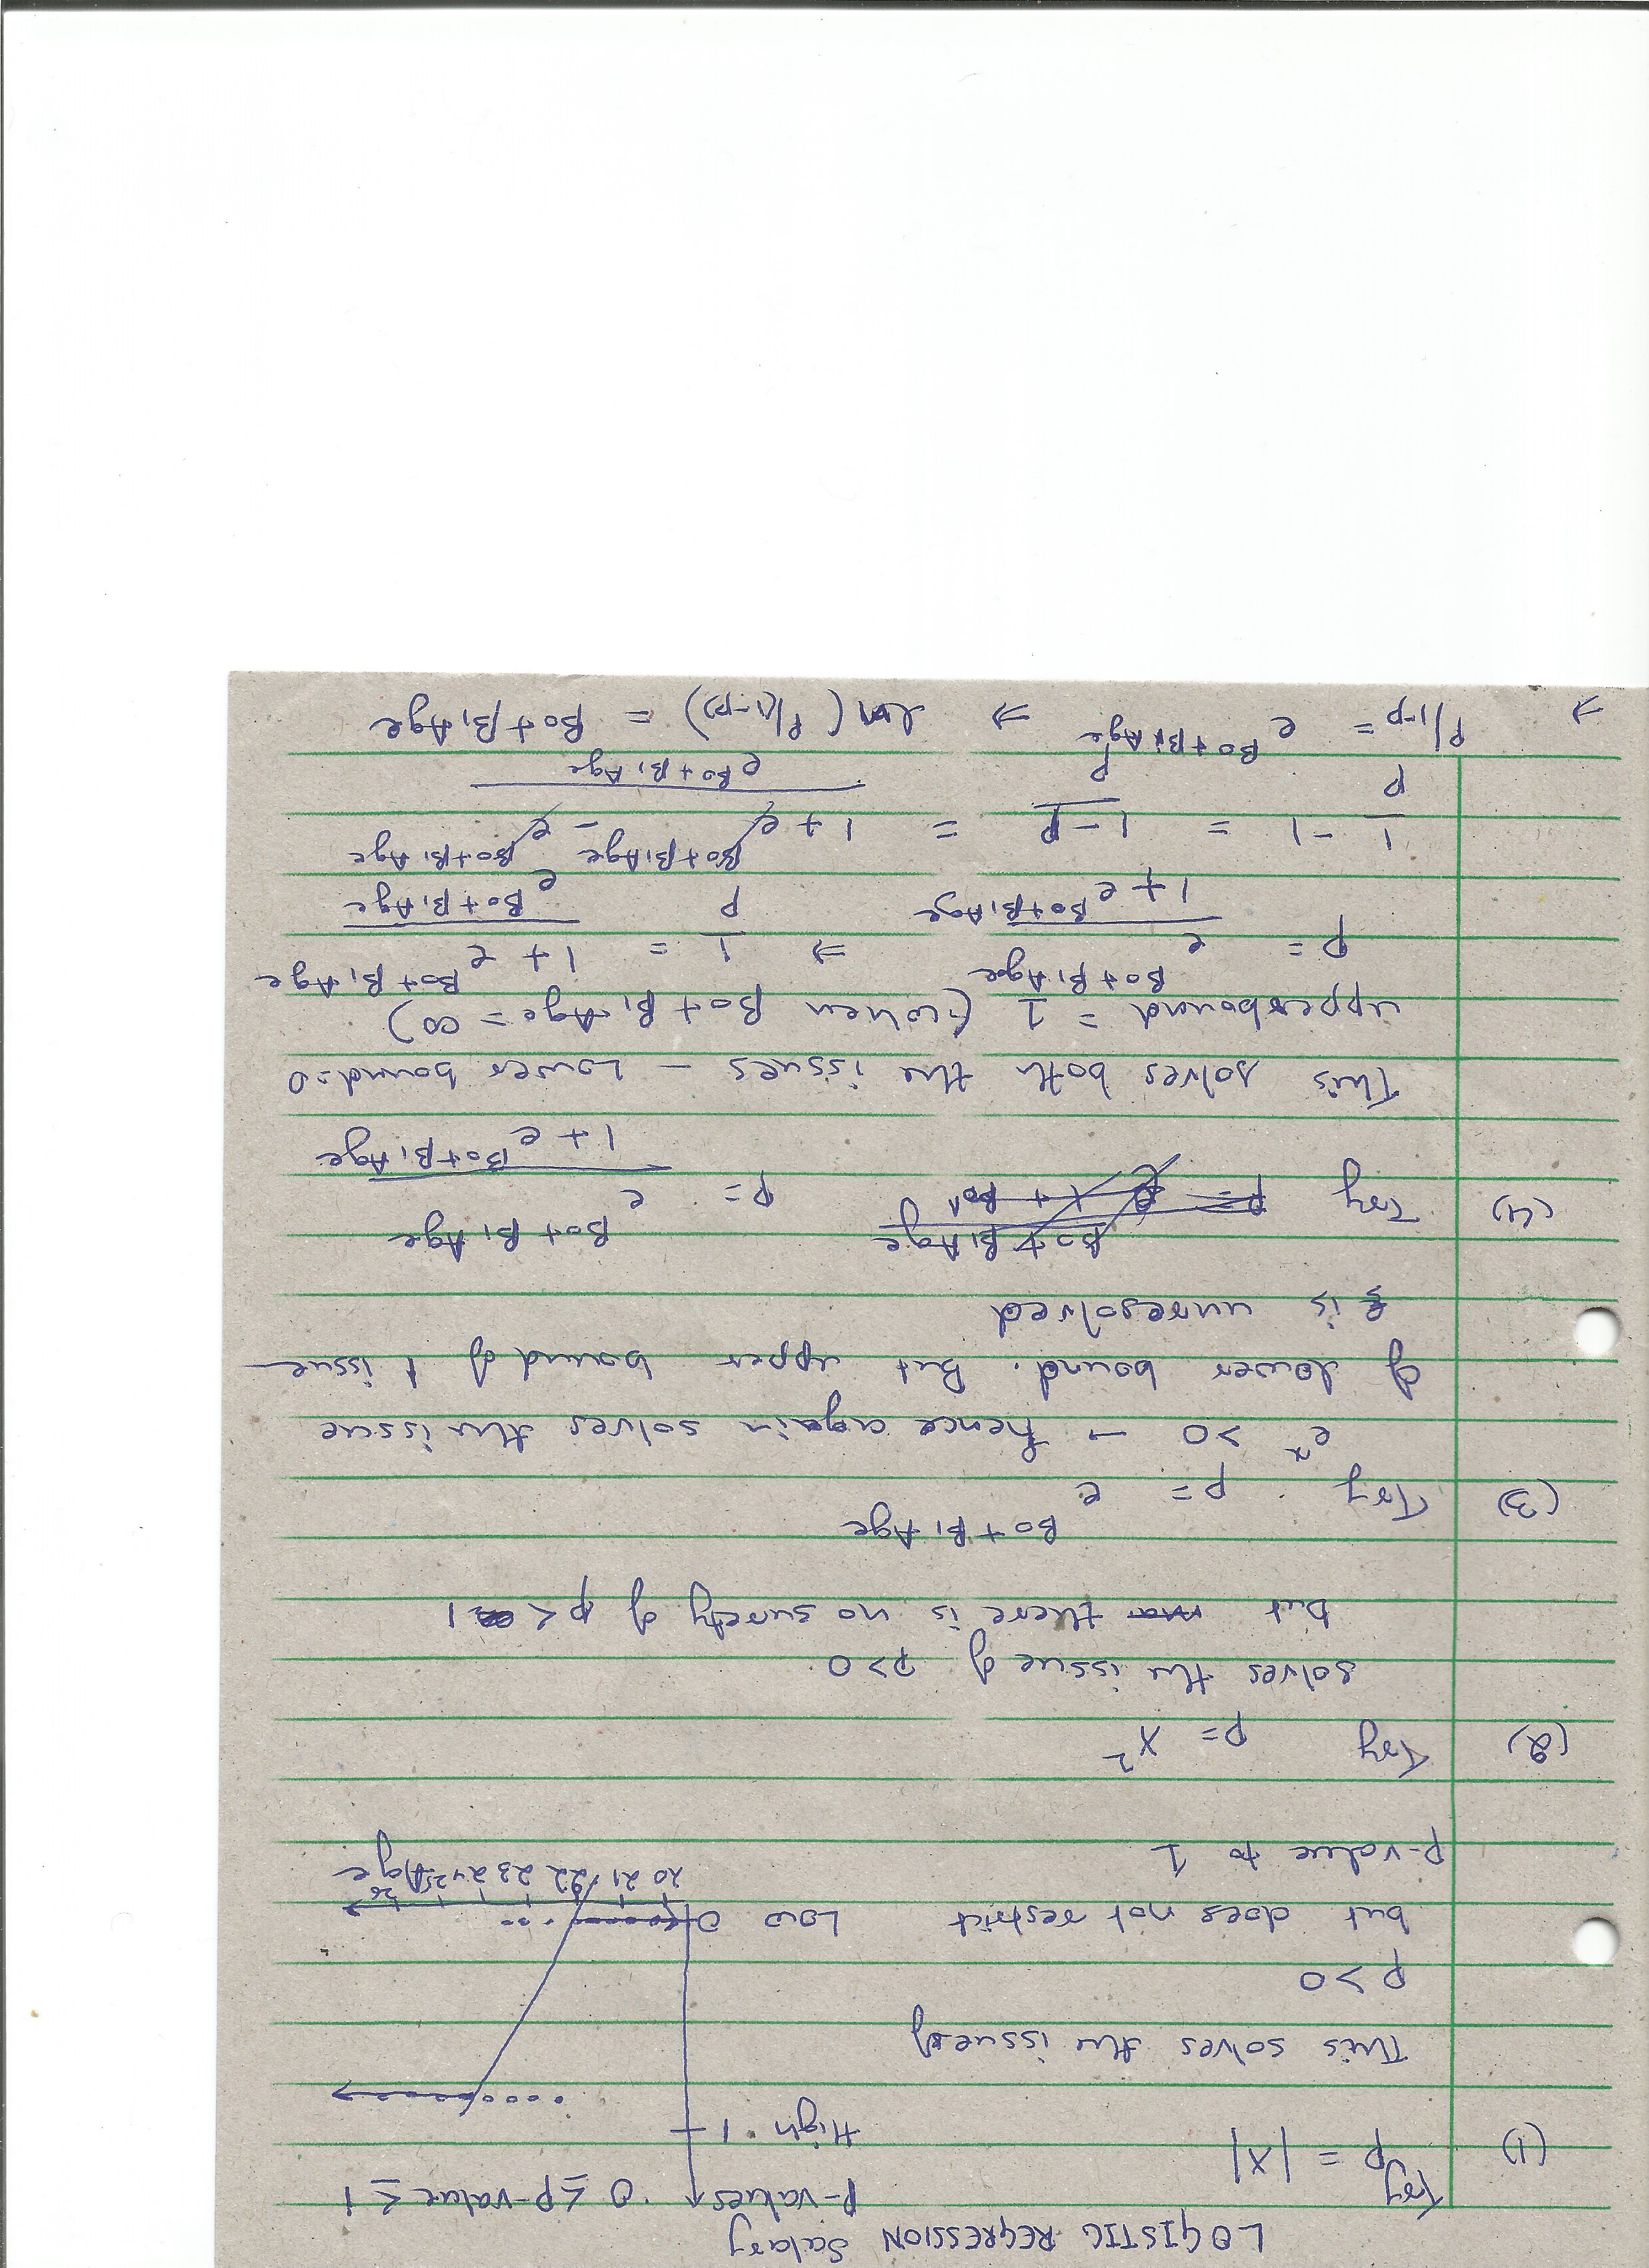 LOGISTIC REGRESSION Salary
P-values 0 ≤ p-value ≤ 1
High 1
Low 0
20 21 22 23 24 25 26
Age
(1) Try
p = |X|
This solves the issue of
p > 0
but does not restrict
p-value to 1
(2) Try p = X²
solves the issue of p > 0.
but there is no surety of p < 1
(3) Try p = e^(β0 + β1 Age)
e^x > 0 → hence again solves the issue
of lower bound. But upper bound of 1 issue
is unresolved
(4) Try p = e^(β0 + β1 Age) / (1 + e^(β0 + β1 Age))
This solves both the issues – Lower bound = 0
upperbound = 1 (when β0 + β1 Age = ∞)
p = e^(β0 + β1 Age) / (1 + e^(β0 + β1 Age)) ⇒ 1/p = (1 + e^(β0 + β1 Age)) / e^(β0 + β1 Age)
1/p - 1 = (1 - p)/p = (1 + e^(β0 + β1 Age) - e^(β0 + β1 Age)) / e^(β0 + β1 Age)
⇒ P/1-p = e^(β0 + β1 Age) ⇒ ln(P/(1-p)) = β0 + β1 Age